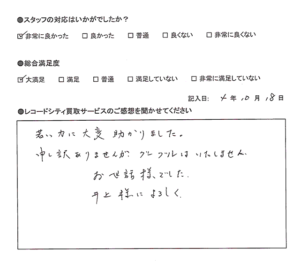 ●スタッフの対応はいかがでしたか?
☑ 非常に良かった □ 良かった □ 普通 □ 良くない □ 非常に良くない
●総合満足度
☑ 大満足 □ 満足 □ 普通 □ 満足していない □ 非常に満足していない
記入日: 4年10月18日
●レコードシティ買取サービスのご感想を聞かせてください
若い力に大変助かりました。
申し訳ありませんが はいたしません
お世話様でした。
井上様によろしく